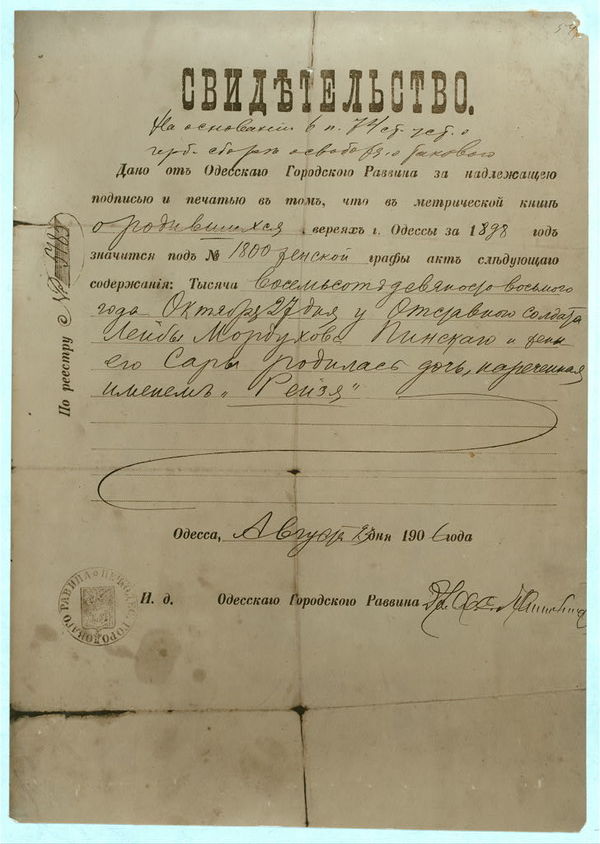 СВИДѢТЕЛЬСТВО.
На основаніи 6 п. 74 ст. уст. о
герб. сборѣ освобожд. о таковаго
Дано отъ Одесскаго Городского Раввина за надлежащею
подписью и печатью въ томъ, что въ метрической книгѣ
о родившихся евреяхъ г. Одессы за 1898 годъ
значится подъ № 1800 женской графы актъ слѣдующаго
содержанія: Тысяча восемьсотъ девяносто восьмого
года Октября 27 дня у Отставного солдата
Лейбы Мордухова Пинскаго и жены
его Сары родилась дочь, нареченная
именемъ „Рейзя"
Одесса, Августа дня 1906 года
И. д. Одесскаго Городского Раввина
По реестру №